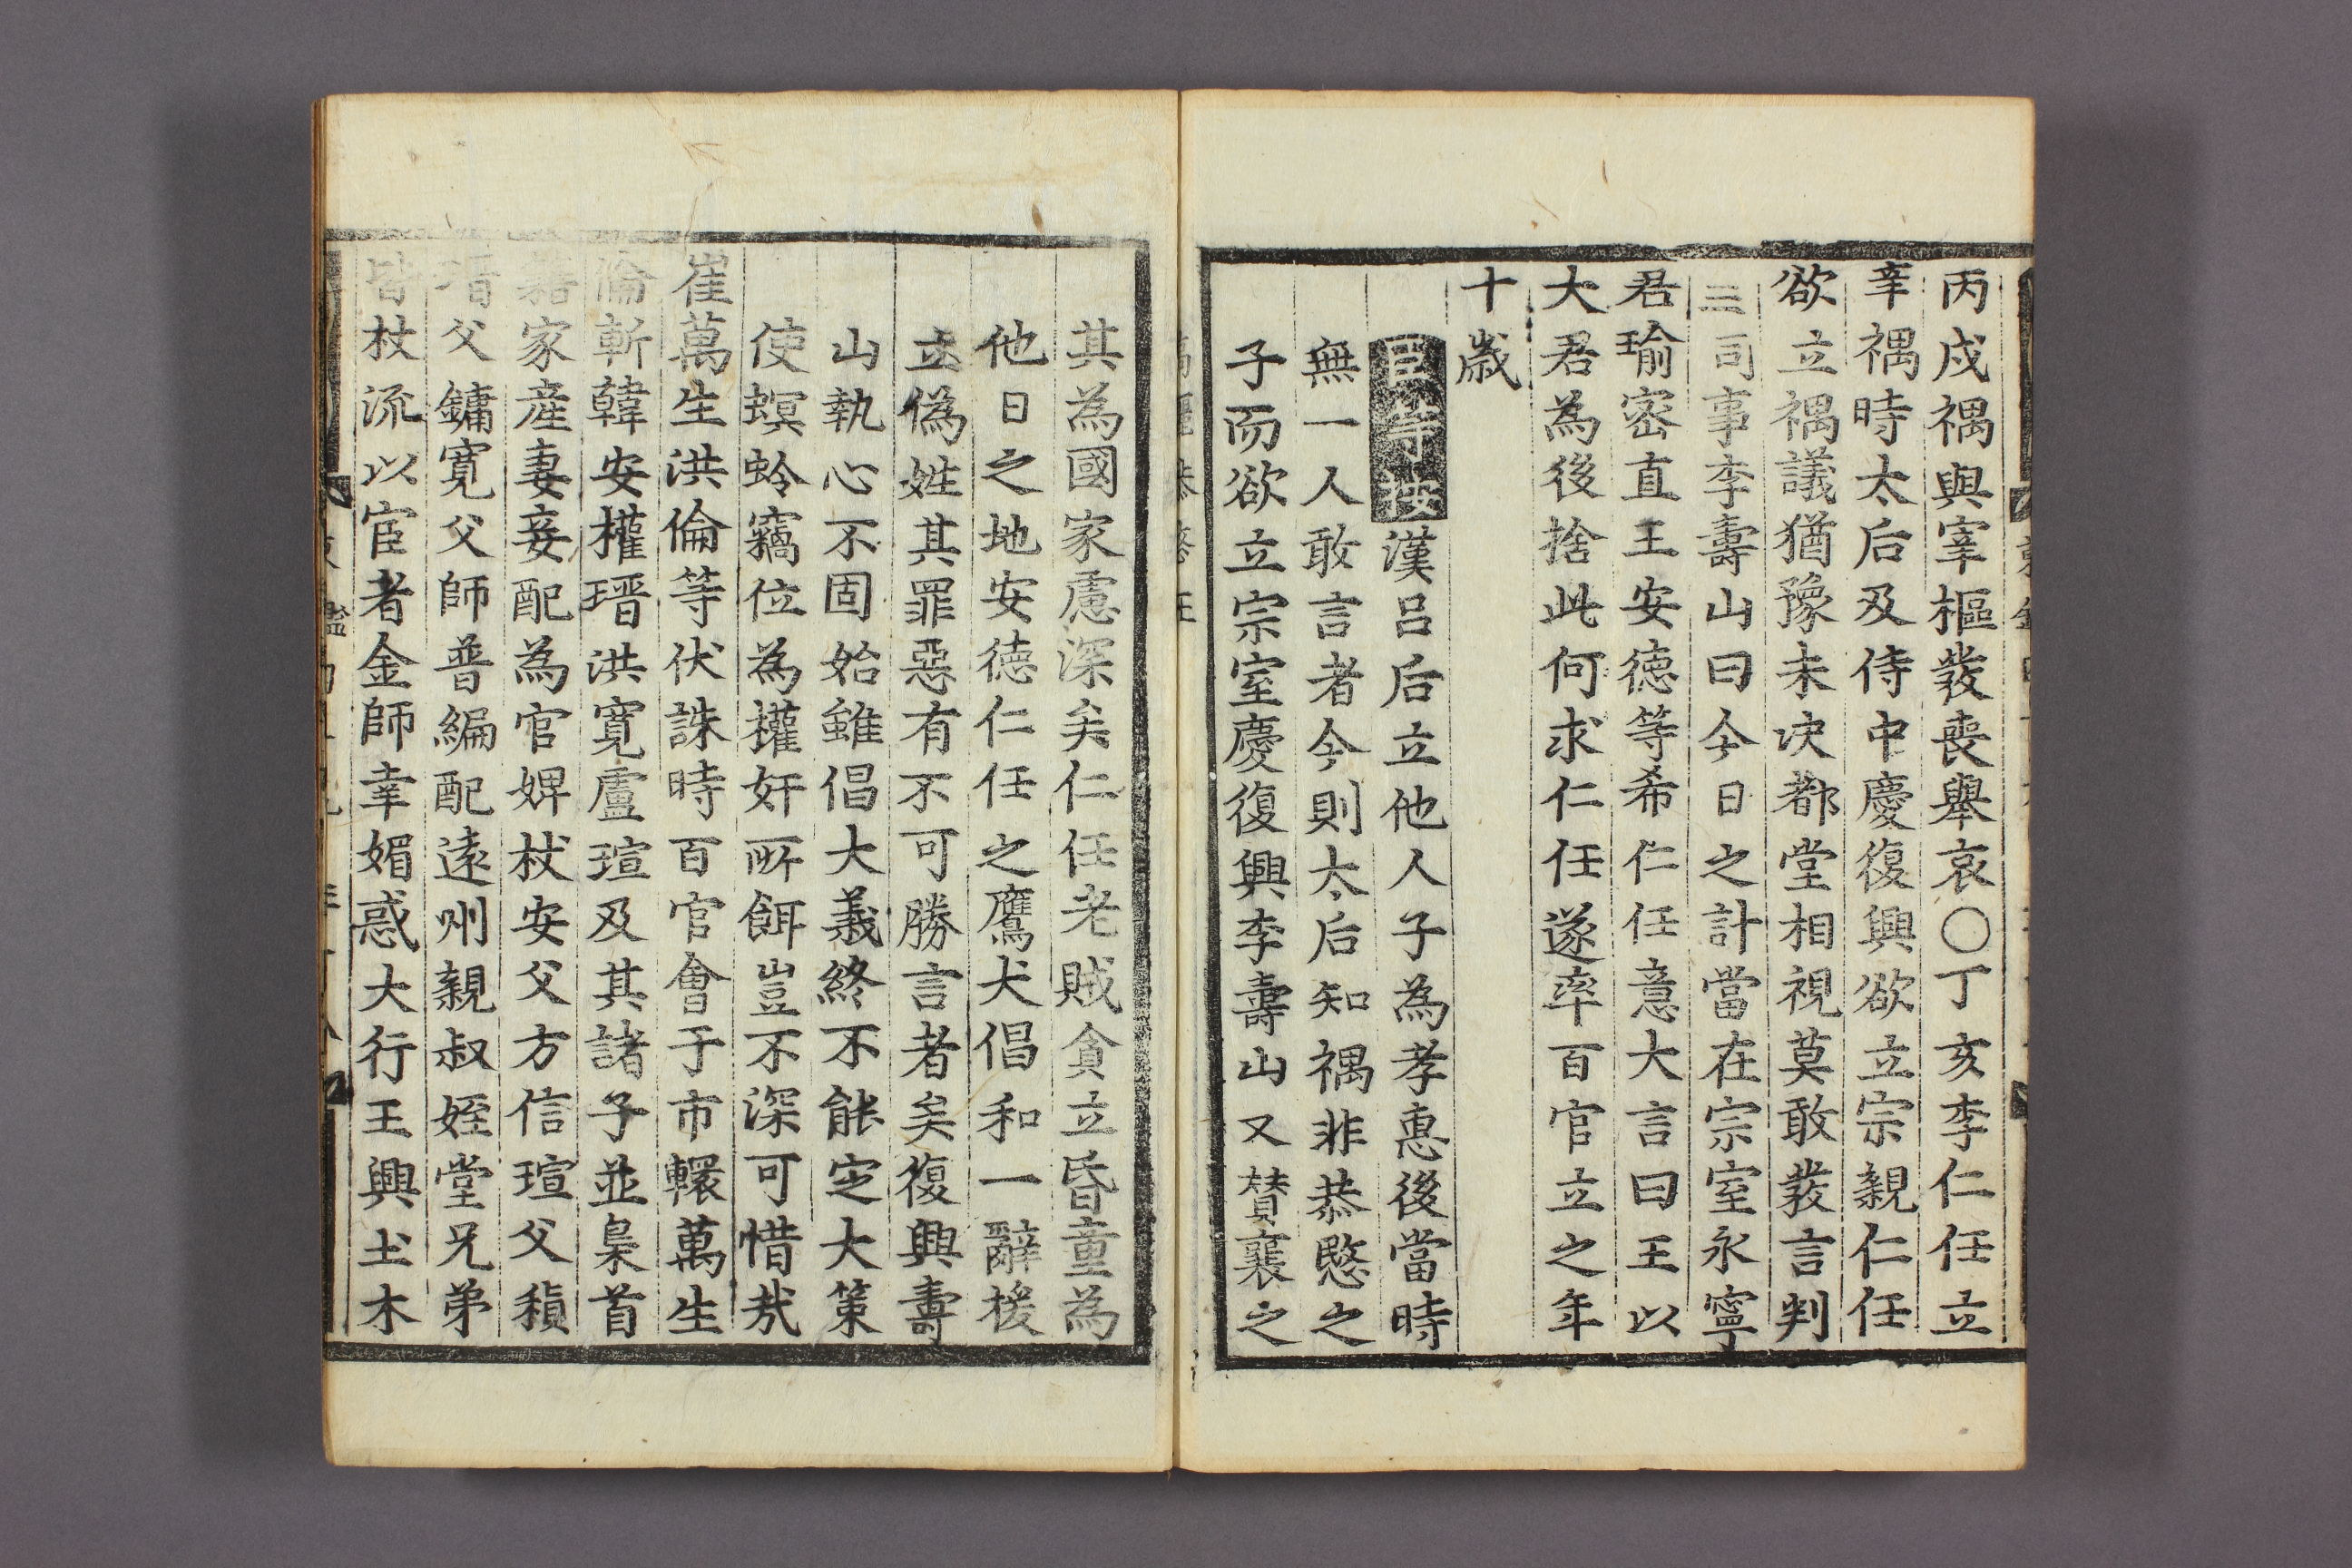 丙戌禑與宰樞發喪舉哀○丁亥李仁任立
辛禑時太后及侍中慶復興欲立宗親仁任
欲立禑議猶豫未决都堂相視莫敢發言判
三司事李壽山曰今日之計當在宗室永寧
君瑜密直王安德等希仁任意大言曰王以
大君為後捨此何求仁任遂率百官立之年
十歲
臣等按漢呂后立他人子為孝惠後當時
無一人敢言者今則太后知禑非恭愍之
子而欲立宗室慶復興李壽山又賛襄之
其為國家慮深矣仁任老賊貪立昏童為
他日之地安德仁任之鷹犬倡和一辭援
立偽姓其罪惡有不可勝言者矣復興壽
山執心不固始雖倡大義終不能㝎大策
使螟蛉竊位為權奸所餌豈不深可惜㢤
崔萬生洪倫等伏誅時百官會于市轘萬生
倫斬韓安權瑨洪寬盧瑄及其諸子並梟首
籍家産妻妾配為官婢杖安父方信瑄父稹
瑨父鏞寛父師普編配遠州親叔姪堂兄弟
皆杖流以宦者金師幸媚惑大行王興土木